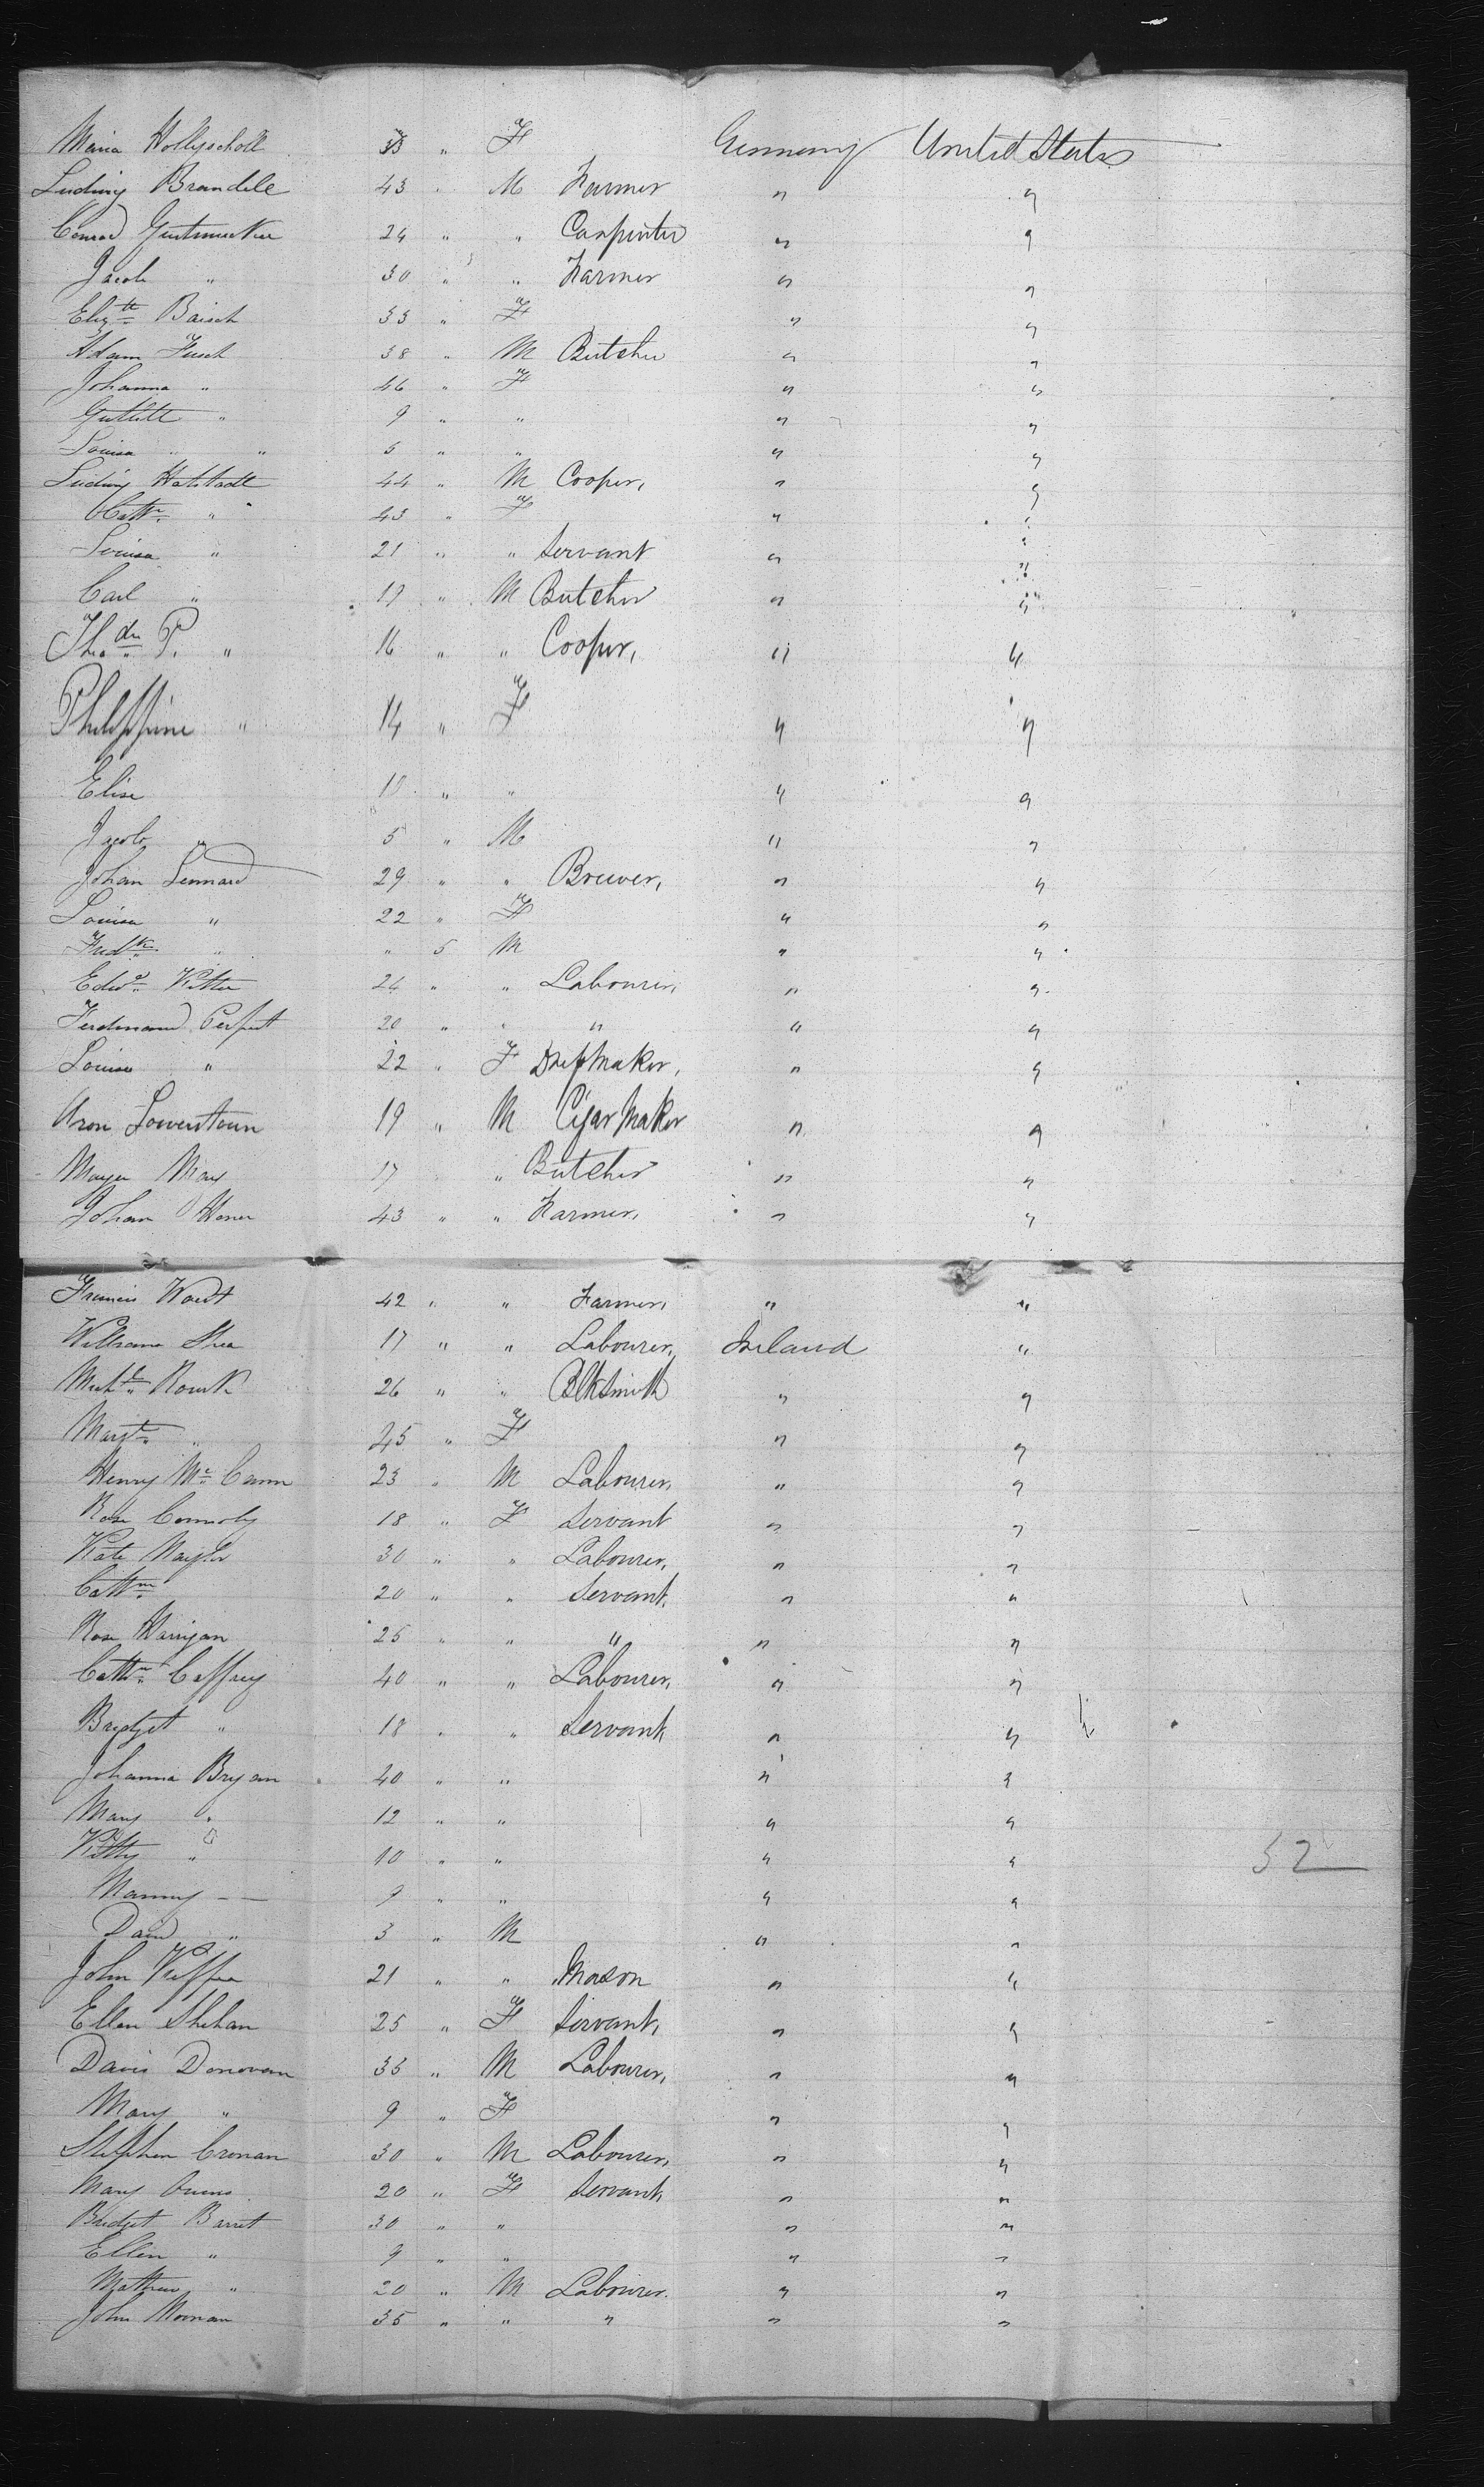 Maria Hollyscholl 33 " F Germany United States
Ludwig Brandele 43 " M Farmer " "
Conrad 24 " " Carpenter " "
Jacob " 30 " " Farmer " "
Elizth Baisch 33 " F " "
Adam Fusch 38 " M Butcher " "
Johanna " 46 " F " "
" 9 " " " "
Louisa " " 5 " " " "
Ludwig Hatstadt 44 " M Cooper, " "
Cathn " 43 " F " "
Louisa " 21 " " Servant " "
Carl " 19 " M Butcher " "
Theodr P. " 16 " " Cooper, " "
Philippine " 14 " F " "
Elise 10 " " " "
Jacob " 5 " M " "
Johan Lennard 29 " " Brewer, " "
Louisa " 22 " F " "
Fredk " " 5 M " "
Edwd Witter 24 " " Labourer, " "
Ferdinand Perfutt 20 " " " " "
Louise " 22 " F DressMaker, " "
Aron Lowenstown 19 " M Cigar Maker " "
Mayer May 17 " Butcher " "
Johan Horner 43 " " Farmer, " "
Francis Woert 42 " " Farmer, " "
William Shea 17 " " Labourer, Ireland "
Michl Rourk 26 " " BlkSmith " "
Margt " 45 " F " "
Henry Mc Cann 23 " M Labourer, " "
Rose Connoly 18 " F Servant " "
Kate 30 " " Labourer, " "
Cathne 20 " " Servant, " "
Rose Harrigan 25 " " " " "
Cathn Caffrey 40 " " Labourer, " "
Bridget " 18 " " Servant, " "
Johanna Bryan 40 " " " "
Mary " 12 " " " "
Kitty " 10 " " " "
52
Nanny — — 9 " " " "
David " 3 " M " "
John 21 " " Mason " "
Ellen Shehan 25 " F Servant, " "
Davis Donovan 35 " M Labourer, " "
Mary " 9 " F " "
Stephen Cronan 30 " M Labourer, " "
Mary Owens 20 " F Servant, " "
Bridget Barret 30 " " " "
Ellen " 9 " " " "
Mathew " 20 " M Labourer. " "
John Moonan 35 " " " " "